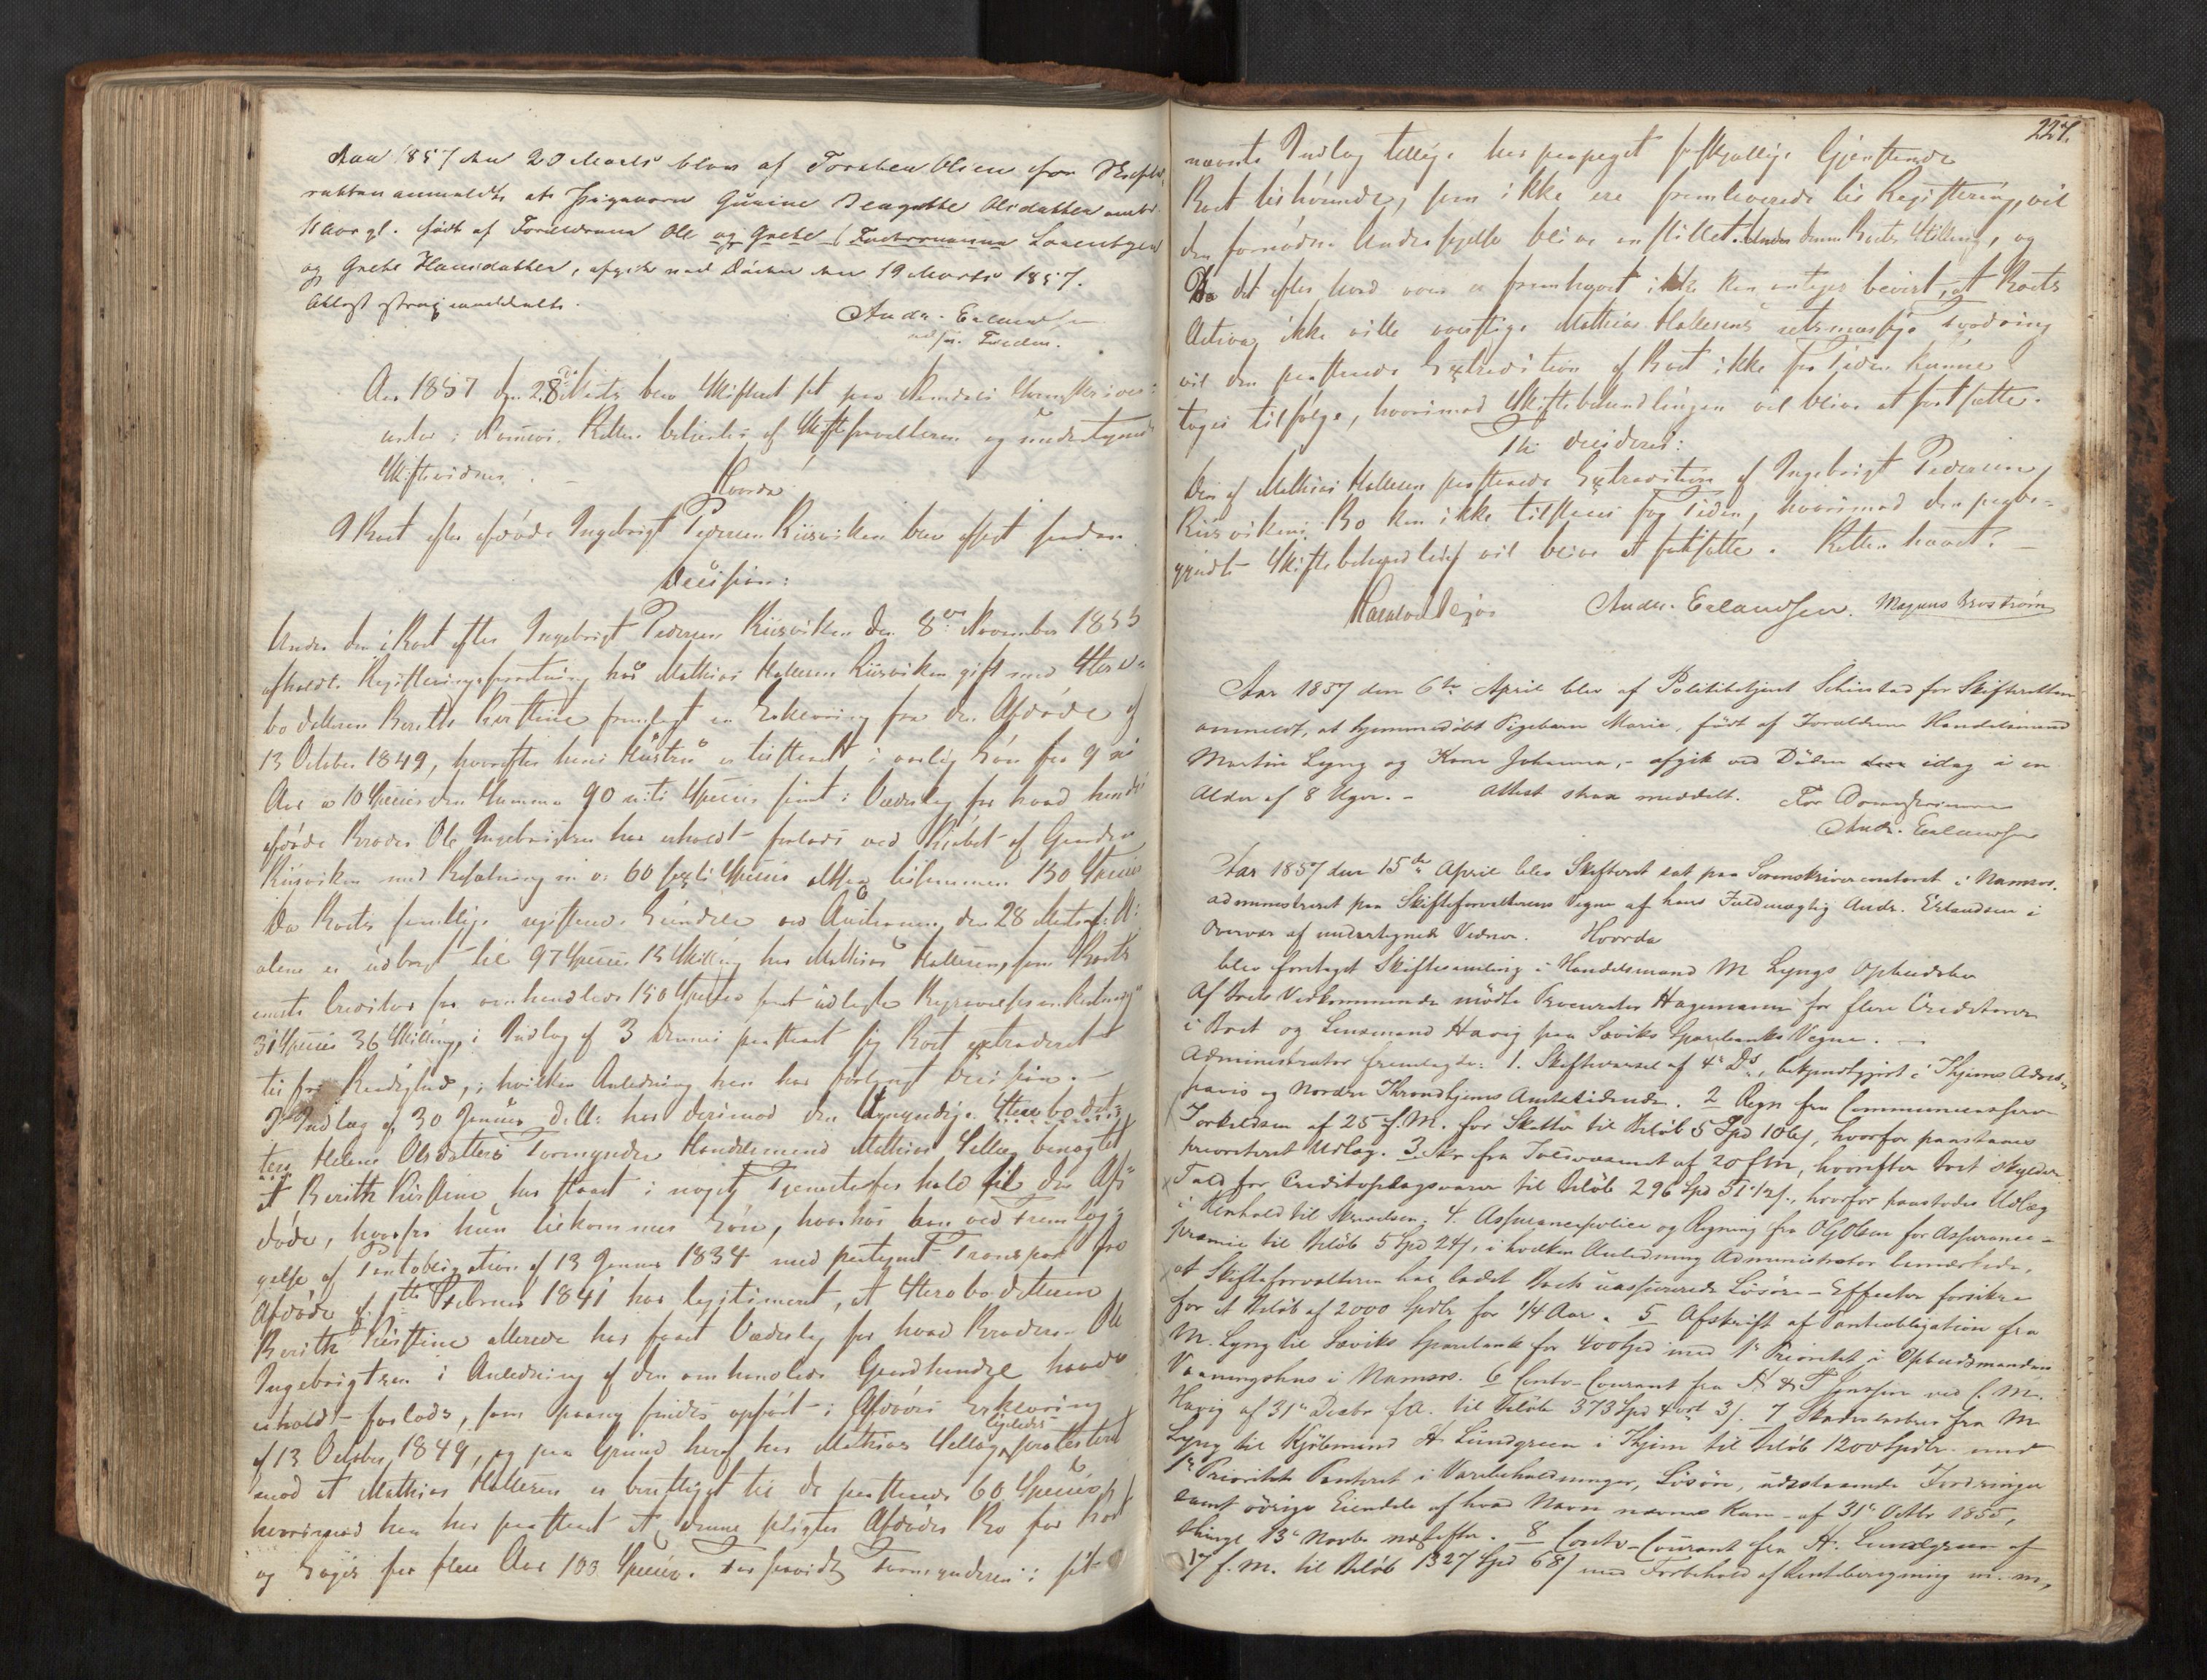 Aar 1857 den 20 Marts blev af Torsten Olsen for Skifte-
retten anmeldt at Pigebarn Gurine Olsdatter
11 Aar gl. født af Forældrene Ole og Grete
og Grete Hansdatter, afgik ved Døden den 19 Marts 1857.
Attest strax meddeelt.
Andr. Erlandsen
Aar 1857 den 28de Marts blev Skifteret sat paa Namdals Sorenskriver-
contor i Namsos. Retten betientes af Skifteforvalteren og undertegnede
Skiftevidner.
Hvorda
I Boet efter afdøde Ingebrigt Pedersen Riisviken blev afsagt saadan
Decision:
Under den i Boet efter Ingebrigt Pedersen Riisviken den 8de November 1855
afholdte Registreringsforretning har Mathias Hallesen Riisviken gift med Sterv-
bodatteren Berith Kirstine fremlagt en Erklæring fra den Afdøde af
13 October 1849, hvorefter hans Hustru er tilstaaet i aarlig Løn for 9 ni
Aar a 10 Species den Summa 90 niti Species samt i Vederlag for hvad hendes
afdøde Broder Ole Ingebrigtsen har erholdt forlods ved Kiøbet af Gaarden
Riisviken med Besætning m. v. 60 sexti Species altsaa tilsammen 150 Species
Da Boets samtlige registrerede Eiendele ved Auctionen den 28 Marts f. A.
alene er udbragt til 97 Species 13 Skilling har Mathias Hallesen, som Boets
eneste Creditor for omhandlede 150 Species samt udlagte Begravelsesomkostninger
31 Species 36 Skilling, i Indlæg af 3 dennes paastaaet sig Boet extraderet
til fri Raadighed, i hvilken Anledning han har forlangt Decision.
I Indlæg af 30 Januar d. A. har derimod den umyndige Stervbodat-
ters Helene Olsdatters Formynder Handelsmand Mathias Sellæg benægtet
at Berith Kirstine har staaet i noget Tjenesteforhold til den Af-
døde, hvorfor hun tilkommer Løn, hvorhos han ved Fremlæg-
gelse af Pantobligation af 13 Januar 1834 med paategnet Transport fra
Afdøde af 1ste Februar 1841 har legitimeret, at Stervbodatteren
Berith Kirstine allerede har faaet Vederlag for hvad Broderen Ole
Ingebrigtsen i Anledning af den omhandlede Gaardhandel havde
erholdt forlods, som findes opført i Afdødes Erklæring
af 13 October 1849, og paa Grund heraf har Mathias Sellæg ligeledes protesteret
mod at Mathias Hallesen er berettiget til de paastaaede 60 Species,
hvorimod han har paastaaet at denne pligter Afdødes Bo for
og for flere Aar 103 Species. Forsaavidt Formynderen i sit
227.
nævnte Indlæg tillige har paapeget forskjellige Gjenstande
Boet tilhørende, som ikke ere fremleverede til Registrering, vil
den fornødne Undersøgelse blive anstillet. Under denne Boets Stilling, og
Da det efter hvad som er fremkommet ikke kan antages bevist, at Boets
Activa ikke ville overstige Mathias Hallesens retsmæssige Fordring
vil den paastaaede Extradition af Boet ikke for Tiden kunne
tages tilfølge, hvorimod Skiftebehandlingen vil blive at fortsætte.
Thi decideres:
Den af Mathias Hallesen paastaaede Extradition af Ingebrigt Pedersen
Riisvikens Bo kan ikke tilstaaes for Tiden, hvorimod den paabe-
gyndte Skiftebehandling vil blive at fortsætte. Retten hævet.
Andr. Erlandsen. Magnus Brostrøm
Aar 1857 den 6te April blev af Politibetjent Schiestad for Skifteretten
anmeldt, at hjemmedøbt Pigebarn Marie, født af Forældrene Handelsmand
Martin Lyng og Kone Johanna, - afgik ved Døden idag i en
Alder af 8 Uger. - Attest strax meddelt. For Sorenskriveren
Andr. Erlandsen
Aar 1857 den 15de April blev Skifteret sat paa Sorenskrivercontoret i Namsos.
administreret paa Skifteforvalterens Vegne af hans Fuldmægtig Andr. Erlandsen i
Overvær af undertegnede Vidner. Hvorda
blev foretaget Skiftesamling i Handelsmand M Lyngs Opbudsbo
Af Boets Vedkommende mødte Procurator Hagemann for flere Creditorer
i Boet og Lensmand Havig paa Sævik Sparebanks Vegne. -
Administrator fremlagde: 1. Skiftevarsel af 4de Ds, bekjendtgjort i Thjems Adres-
seavis og Nordre Throndhjems Amtstidende. 2 Regn fra Communecasserer
Torkildsen af 25 f. M. for Skatter til Beløb 5 Spd 106 s, hvorfor paastaaes
prioriteret Udlæg. 3. Skr fra Toldvæsenet af 20 f.m, hvorefter Boet skylder
Told for Creditoplagsvarer til Beløb 296 Spd 51 1/2 s., hvorfor paastodes Udlæg
i Henhold til Skrivelsen; 4. Assurancepolice og Regning fra O Olsen for Assurance-
præmie til Beløb 5 Spd 24 s, i hvilken Anledning Administrator bemærkede,
at Skifteforvalteren har ladet Boets uassurerede Løsøre-Effecter forsikre
for et Beløb af 2000 Spdlr for 1/4 Aar. 5 Afskrift af Pantobligation fra
M. Lyng til Sæviks Sparebank for 400 Spd med 1ste Prioritet i Opbudsmandens
Vaaningshus i Namsos. 6 Conto-Courant fra ved f. M.
Havig af 31te Decbr f.A. til Beløb 373 Spd 4 ort 3 s. 7 Skadesløsbrev fra M
Lyng til Kjøbmand H. Lundgreen i Thjem til Beløb 1200 Spdlr. med
1ste Prioritets Panteret i Varebeholdninger, Løsøre, udestaaende Fordringer
samt øvrige Eiendele af hvad Navn nævnes kan - af 31te Octbr 1855,
thinglæst 13de Novbr næstefter. 8 Conto-Courant fra H. Lundgreen af
17 f.m. til Beløb 1327 Spd 68 s med Forbehold af Renteberegning m. m,